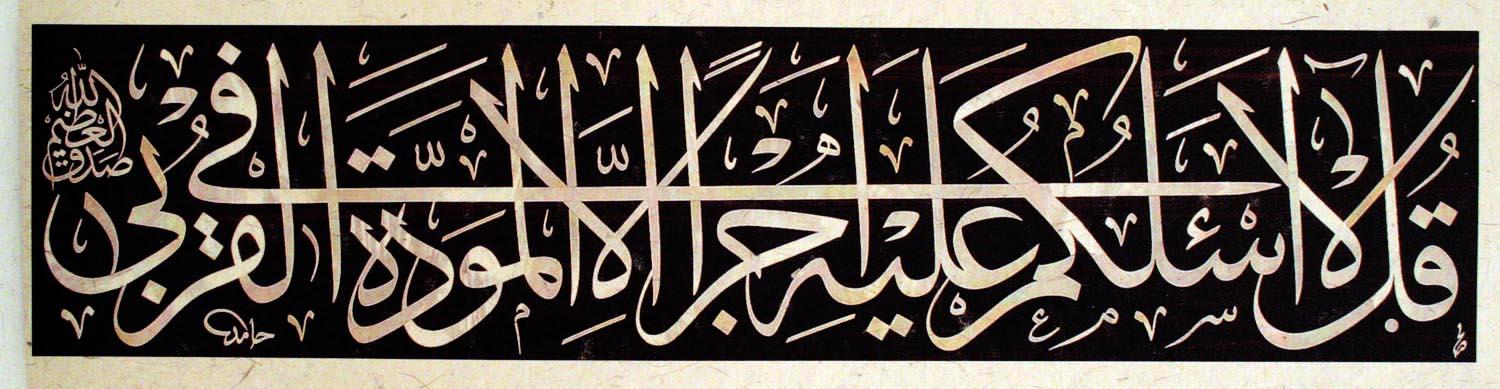 قُل لَا أَسْئَلُكُمْ عَلَيْهِ أَجْرًا إِلَّا الْمَوَدَّةَ فِي الْقُرْبَى
صدق الله العظيم
حامد